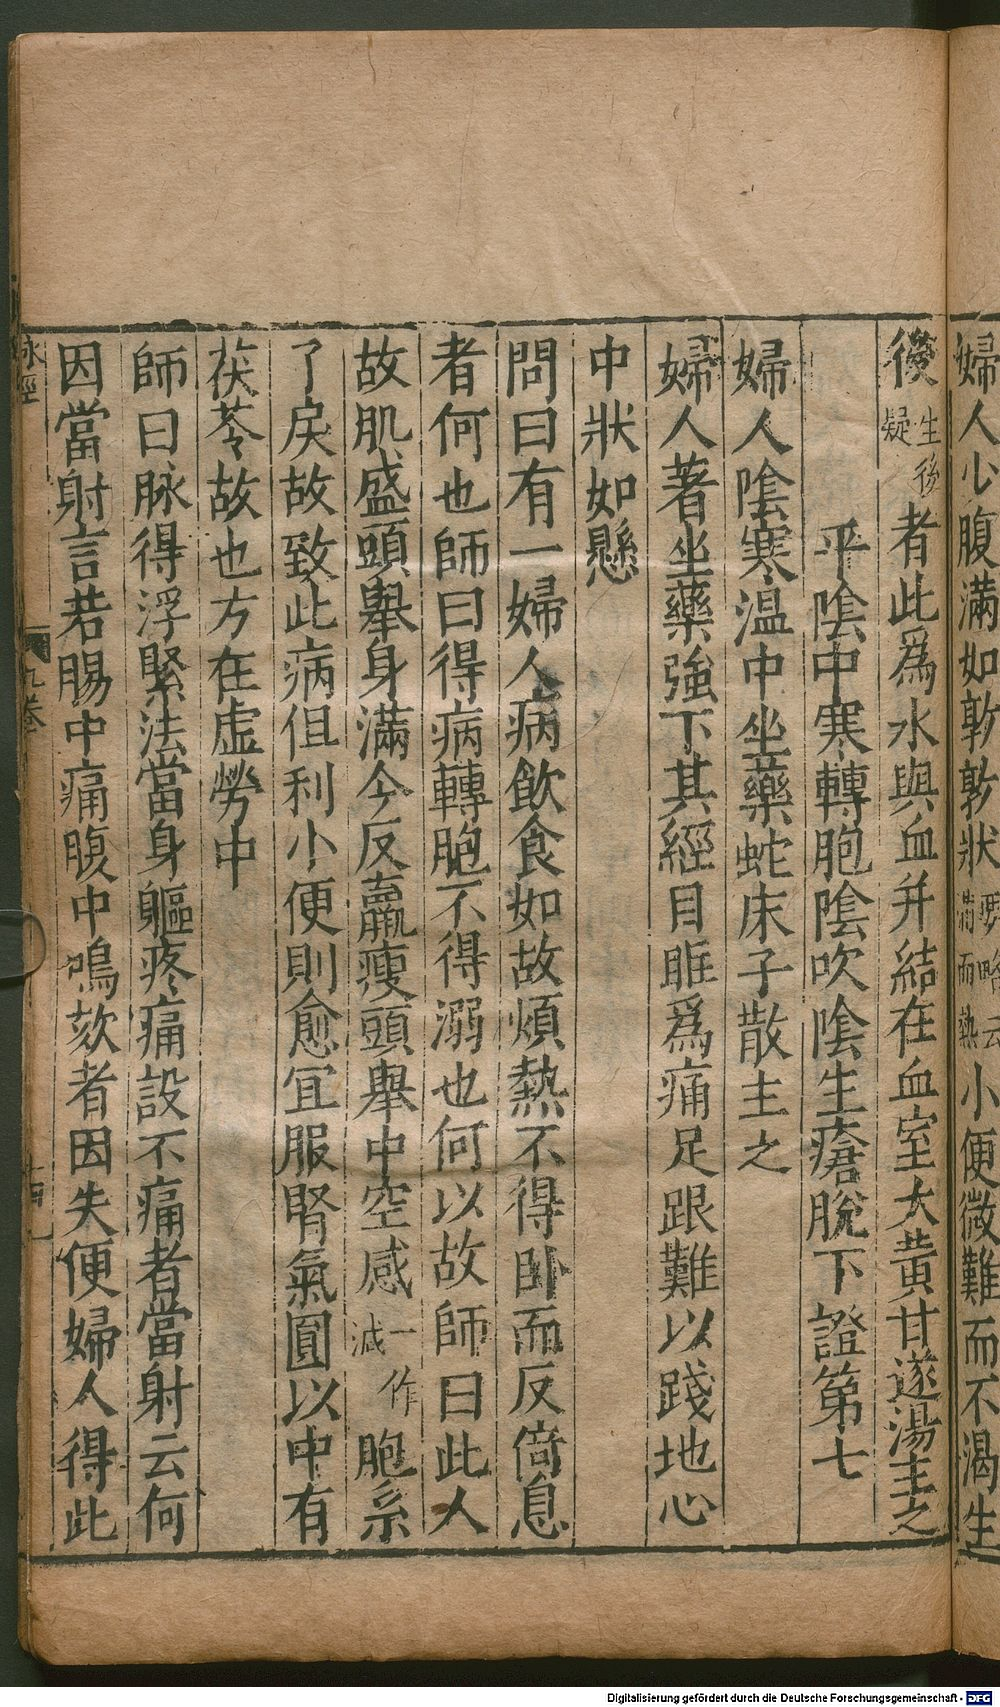 婦人心腹滿如敦敦狀要略云滿而熱小便微難而不渴生
後生後疑者此爲水與血并結在血室大黄甘遂湯主之
平隂中寒轉胞隂吹隂生瘡脫下證第七
婦人隂寒温中坐藥蛇床子散主之
婦人著坐藥強下其經目眶爲痛足跟難以踐地心
中狀如懸
問曰有一婦人病飲食如故煩熱不得卧而反倚息
者何也師曰得病轉胞不得溺也何以故師曰此人
故肌盛頭舉身滿今反羸瘦頭舉中空感一作減胞系
了戾故致此病但利小便則愈宜服腎氣圓以中有
茯苓故也方在虛勞中
師曰脉得浮緊法當身軀疼痛設不痛者當射云何
因當射言若腸中痛腹中鳴欬者因失便婦人得此
脉經
九卷
Digitalisierung gefördert durch die Deutsche Forschungsgemeinschaft - DFG